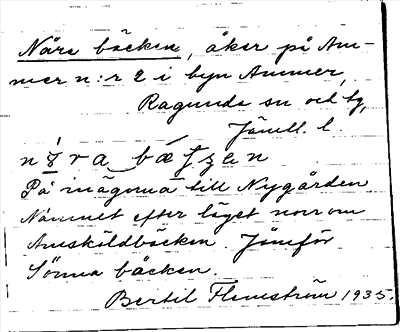 Nära bäcken, åker på Am-
mer n:r 2 i byn Ammer,
Ragunda sn och tg,
Jämtl. l.
På inägorna till Nygården
Namnet efter läget norr om
Amsköldbäcken. Jämför
Sönna bäcken.
Bertil Flemström 1935.